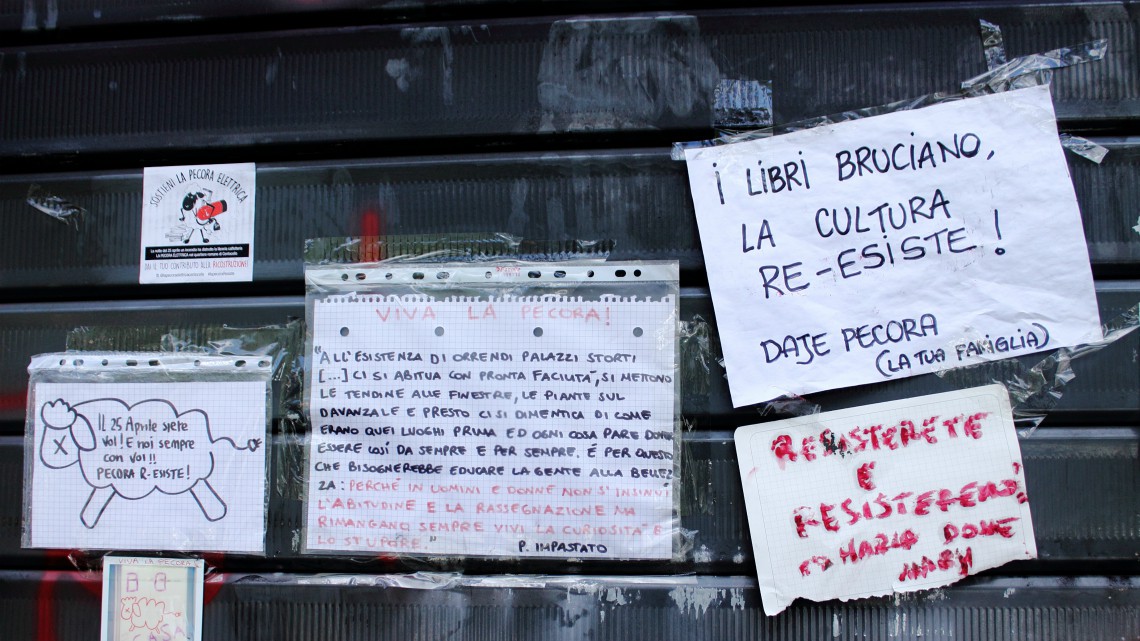 SOSTIENI LA PECORA ELETTRICA
LA PECORA ELETTRICA nel quartiere romano di Centocelle
DAI IL TUO CONTRIBUTO ALLA RICOSTRUZIONE!
Il 25 Aprile siete
voi! E noi sempre
con voi!!
PECORA R-ESISTE!
VIVA LA PECORA!
CASA
VIVA LA PECORA!
"ALL'ESISTENZA DI ORRENDI PALAZZI STORTI
[...] CI SI ABITUA CON PRONTA FACILITA', SI METTONO
LE TENDINE ALLE FINESTRE, LE PIANTE SUL
DAVANZALE E PRESTO CI SI DIMENTICA DI COME
ERANO QUEI LUOGHI PRIMA ED OGNI COSA PARE DOVER
ESSERE COSÍ DA SEMPRE E PER SEMPRE. É PER QUESTO
CHE BISOGNEREBBE EDUCARE LA GENTE ALLA BELLEZ
ZA: PERCHÉ IN UOMINI E DONNE NON S'INSINUI
L'ABITUDINE E LA RASSEGNAZIONE MA
RIMANGANO SEMPRE VIVI LA CURIOSITA' E
LO STUPORE."
P. IMPASTATO
I LIBRI BRUCIANO,
LA CULTURA
RE-ESISTE!
DAJE PECORA
(LA TUA FAMIGLIA)
RESISTERETE
E
RESISTEREMO,